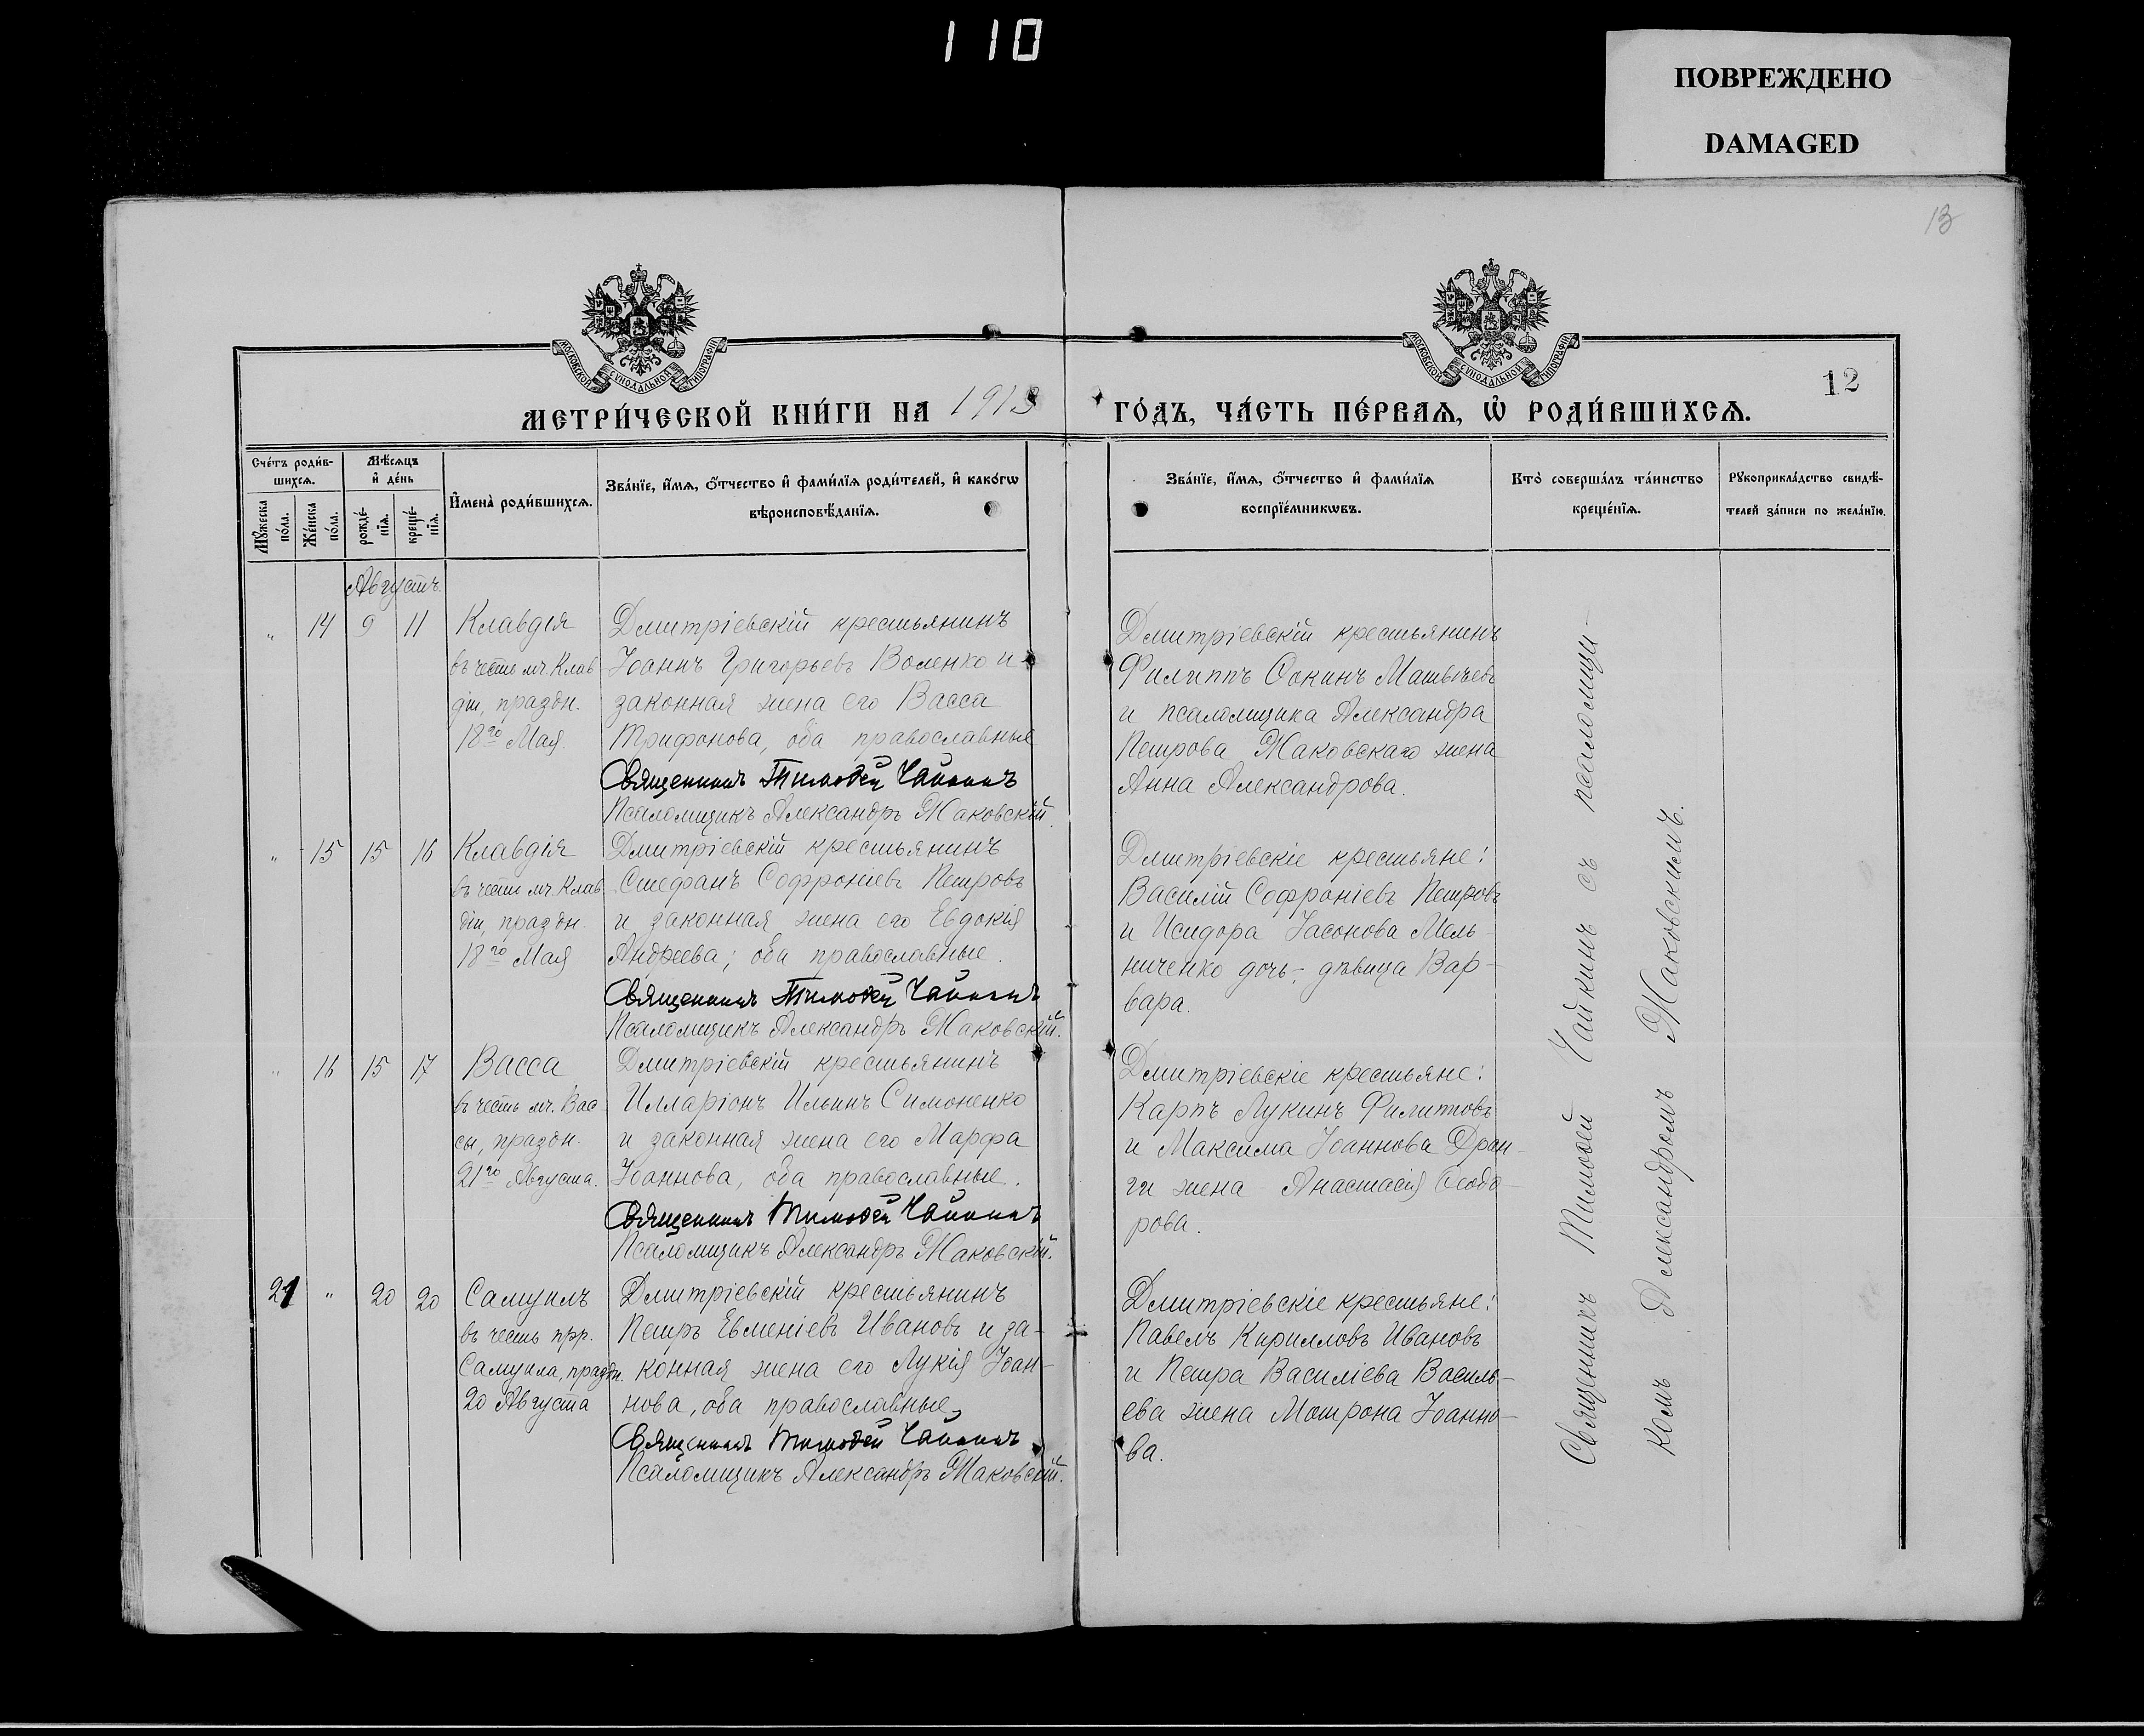 110
ПОВРЕЖДЕНО
DAMAGED
13
МОСКОВСКОЙ СѴНОДАЛЬНОЙ ТИПОГРАФІИ
МОСКОВСКОЙ СѴНОДАЛЬНОЙ ТИПОГРАФІИ
12
МЕТРИ́ЧЕСКОЙ КНИ́ГИ НА 1913
ГО́ДЪ, ЧА́СТЬ ПЕ́РВАѦ, Ѽ РОДИ́ВШИХСѦ.
Сче́тъ роди́в-
шихсѧ.
Мѣ́сѧцъ
и҆ де́нь
Мꙋ́жеска
по́ла.
Же́нска
по́ла.
рожде́-
нїѧ.
креще́-
нїѧ.
И҆мена̀ роди́вшихсѧ.
Зва́нїе, и҆́мѧ, ѻ҆́тчество и҆ фами́лїѧ роди́телей, и҆ како́гѡ
вѣроисповѣ́данїѧ.
Зва́нїе, и҆́мѧ, ѻ҆́тчество и҆ фами́лїѧ
воспрїе́мникѡвъ.
Кто̀ соверша́лъ та́инство
креще́нїѧ.
Рꙋкоприкла́дство свидѣ́-
телей за́писи по жела́нїю.
Августъ.
" 14 9 11
Клавдія
въ честь мч. Клав
діи, праздн.
18го Мая.
Дмитріевскій крестьянинъ
Іоаннъ Григорьевъ Воленко и
законная жена его Васса
Трифонова, оба православные
Священникъ Тимоѳей Чайкинъ
Псаломщикъ Александръ Маковскій.
Дмитріевскій крестьянинъ
Филиппъ Ѳокинъ
и псаломщика Александра
Петрова Маковскаго жена
Анна Александрова.
" 15 15 16
Клавдія
въ честь мч. Клав
діи, праздн.
18го Мая
Дмитріевскій крестьянинъ
Стефанъ Софроніевъ Петровъ
и законная жена его Евдокія
Андреева; оба православные.
Священникъ Тимоѳей Чайкинъ
Псаломщикъ Александръ Маковскій.
Дмитріевскіе крестьяне:
Василій Софроніевъ Петровъ
и Исидора Іасонова Мель-
ниченко дочь - дѣвица Вар-
вара.
" 16 15 17
Васса
въ честь мч. Вас-
сы, праздн.
21го Августа.
Дмитріевскій крестьянинъ
Илларіонъ Ильинъ Симоненко
и законная жена его Марфа
Іоаннова, оба православные.
Священникъ Тимоѳей Чайкинъ
Псаломщикъ Александръ Маковскій.
Дмитріевскіе крестьяне:
Карпъ Лукинъ Филиповъ
и Максима Іоаннова Дран-
ги жена - Анастасія Ѳеодо-
рова.
21 " 20 20
Самуилъ
въ честь прр.
Самуила, праздн.
20 Августа
Дмитріевскій крестьянинъ
Петръ Евменіевъ Ивановъ и за-
конная жена его Лукія Іоан-
нова, оба православные,
Священникъ Тимоѳей Чайкинъ
Псаломщикъ Александръ Маковскій.
Дмитріевскіе крестьяне:
Павелъ Кирилловъ Ивановъ
и Петра Василіева Василь-
ева жена Матрона Іоанно-
ва.
Священникъ Тимоѳей Чайкинъ съ псаломщи-
комъ Александромъ Маковскимъ.